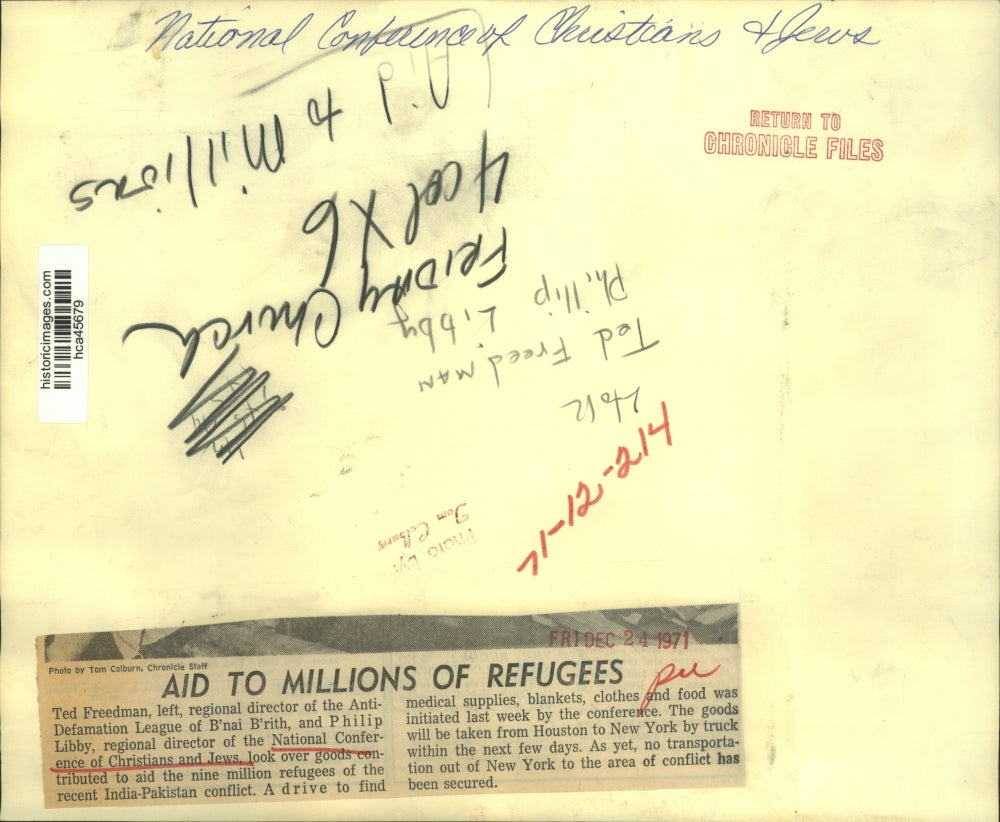 National Conference of Christians & Jews
Aid
Aid
to Millions
RETURN TO
CHRONICLE FILES
4 col X 6
Friday Church
Phillip Libby
Ted Freedman
71-12-214
historicimages.com
hca45679
Photo by:
Tom Colburn
FRI DEC 24 1971
Photo by Tom Colburn, Chronicle Staff
AID TO MILLIONS OF REFUGEES
Ted Freedman, left, regional director of the Anti-
Defamation League of B'nai B'rith, and Philip
Libby, regional director of the National Confer-
ence of Christians and Jews, look over goods con-
tributed to aid the nine million refugees of the
recent India-Pakistan conflict. A drive to find
medical supplies, blankets, clothes and food was
initiated last week by the conference. The goods
will be taken from Houston to New York by truck
within the next few days. As yet, no transporta-
tion out of New York to the area of conflict has
been secured.